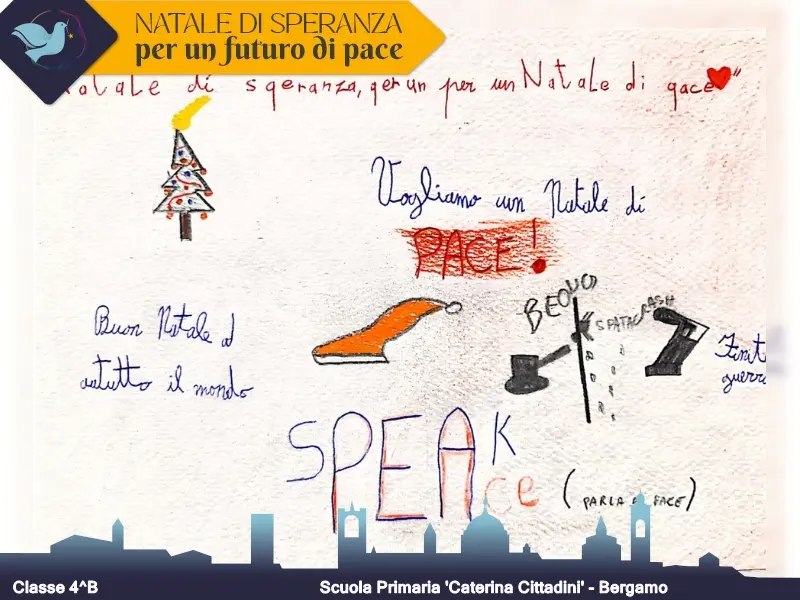 NATALE DI SPERANZA
per un futuro di pace
atale di speranza, per un per un Natale di pace"
Vogliamo un Natale di
PACE!
Buon Natale a
tutto il mondo
BEOUO
SPATACRASH
Finit
guerra
SPEAK
ce
(PARLA DI PACE)
Classe 4^B
Scuola Primaria 'Caterina Cittadini' - Bergamo